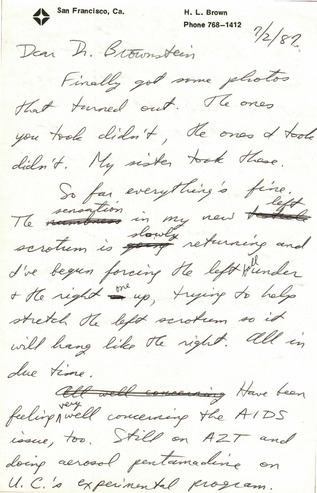 San Francisco, Ca.
H. L. Brown
Phone 768-1412
7/2/87.
Dear Dr. Brownstein
Finally got some photos
that turned out. The ones
you took didn't, the ones I took
didn't. My sister took these.
So far everything's fine.
The numbness sensation in my new left
scrotum is slowly returning and
I've begun forcing the left ball under
+ the right one up, trying to help
stretch the left scrotum so it
will hang like the right. All in
due time.
All well concerning Have been
feeling very well concerning the AIDS
issue, too. Still on AZT and
doing aerosol pentamadine on
U.C.'s experimental program.